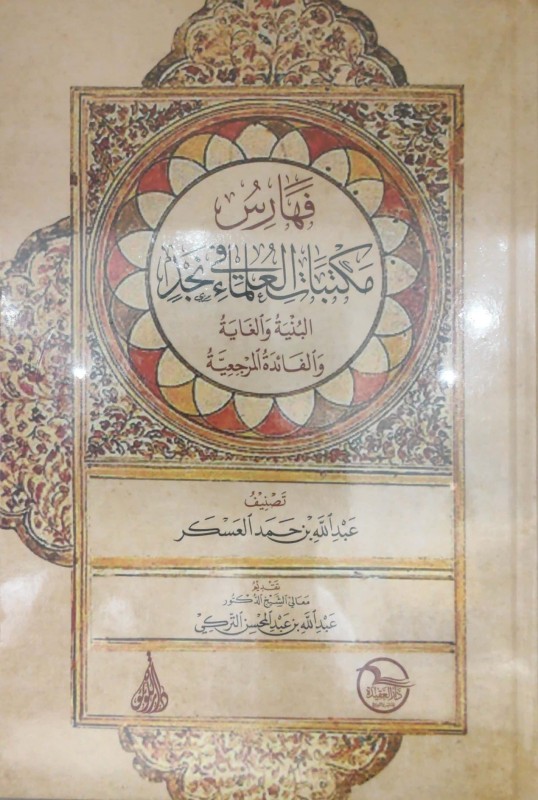 فَهَارِسُ
مَكْتَبَاتِ العُلَمَاءِ فِي نَجْدٍ
البُنْيَةُ وَالغَايَةُ
وَالفَائِدَةُ المَرْجِعِيَّةُ
تَصْنِيفُ
عَبْدِ اللَّهِ بْنِ حَمَدَ العَسْكَر
تَقْدِيمُ
مَعَالِي الشَّيْخِ الدُّكْتُور
عَبْدِ اللَّهِ بْنِ عَبْدِ المُحْسِنِ التُّرْكِي
دَارُ العَقِيدَة